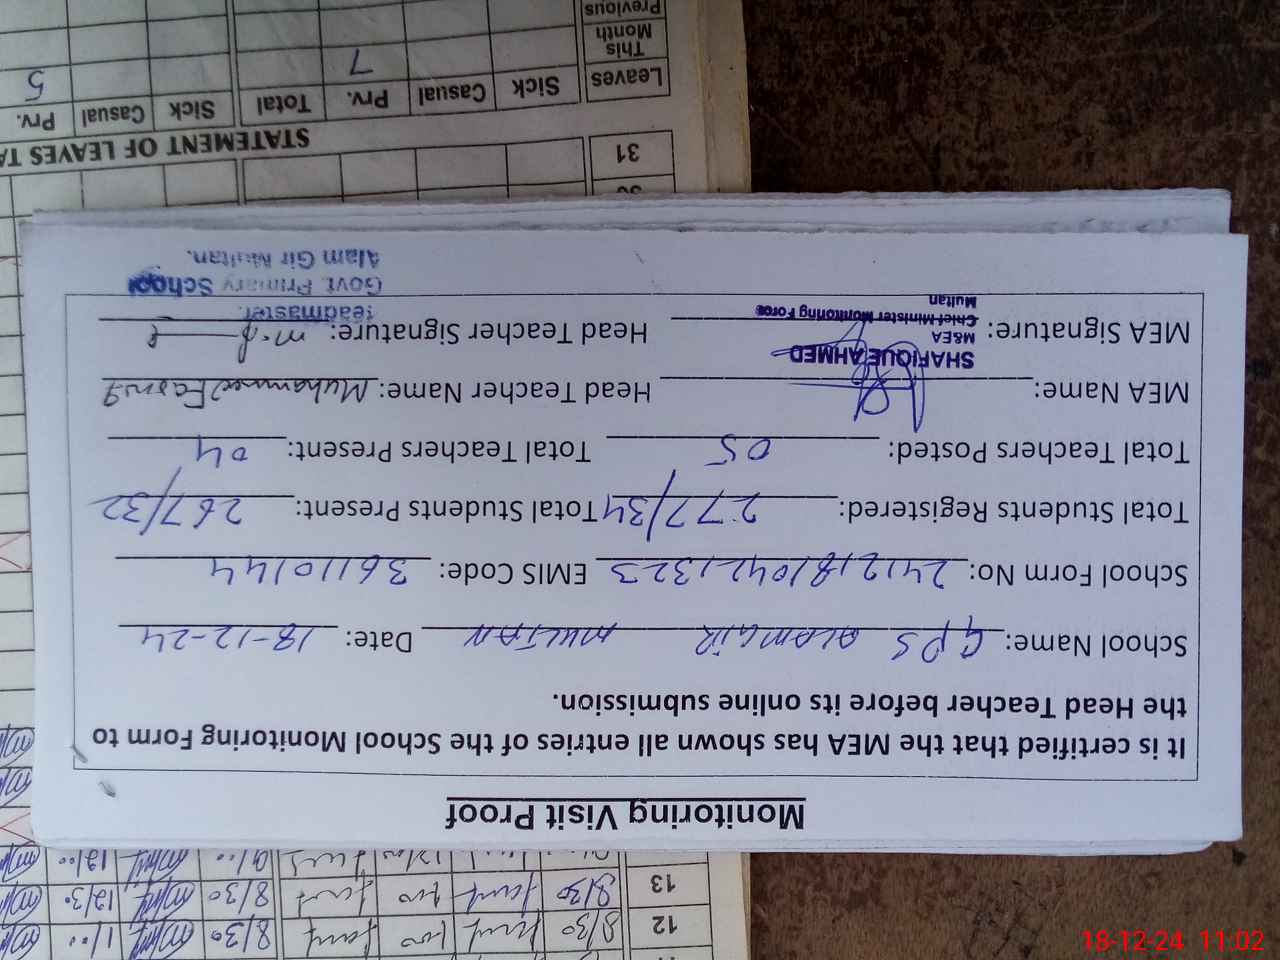 Monitoring Visit Proof
It is certified that the MEA has shown all entries of the School Monitoring Form to
the Head Teacher before its online submission.
School Name: GPS ALAMGIR MULTAN Date: 18-12-24
School Form No: 2412181042,323 EMIS Code: 36110144
Total Students Registered: 277/34 Total Students Present: 267/32
Total Teachers Posted: 05 Total Teachers Present: 04
MEA Name: Head Teacher Name: Muhammad
SHAFIQUE AHMED
M&EA
MEA Signature: Chief Minister Monitoring Force Head Teacher Signature:
Multan
Headmaster
Govt Primary School
Alam Gir Multan.
12 8/30 8/30 1/00
13 8/30 8/30 12/30
31
STATEMENT OF LEAVES TA
Leaves Sick Casual Prv. Total Sick Casual Prv.
This Month 7 5
Previous
18-12-24 11:02